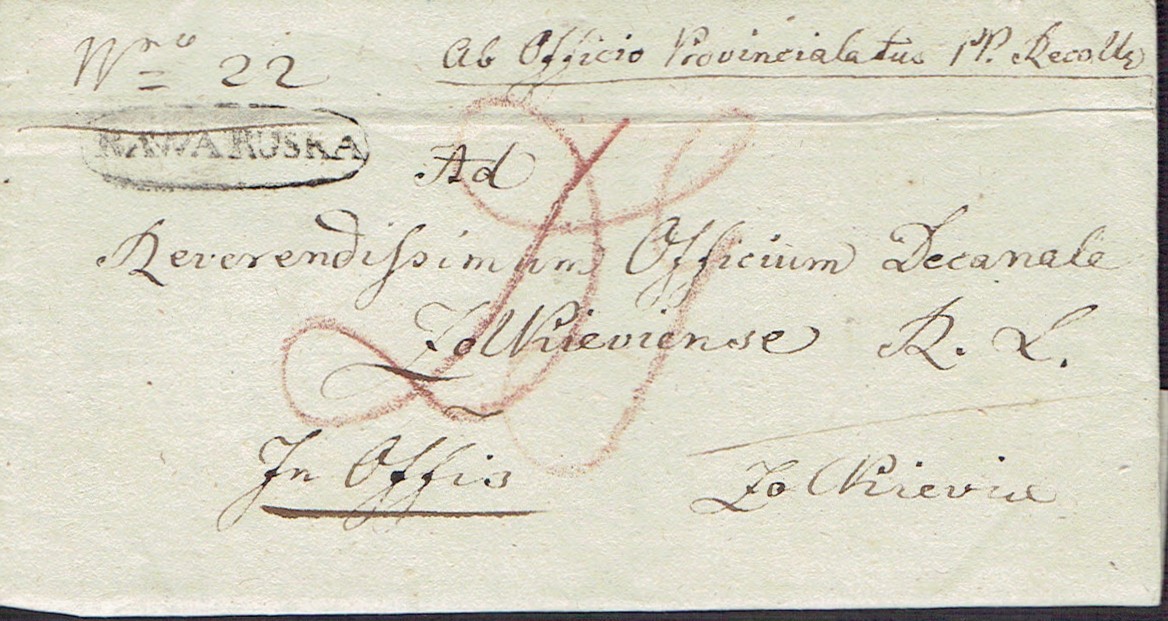 Nro 22
Ab Officio Provincialatus PP. Recoll
RAWA RUSKA
Ad
Reverendissimum Officium Decanale
Zolkieviense R. L.
In Offis
Zolkieviæ